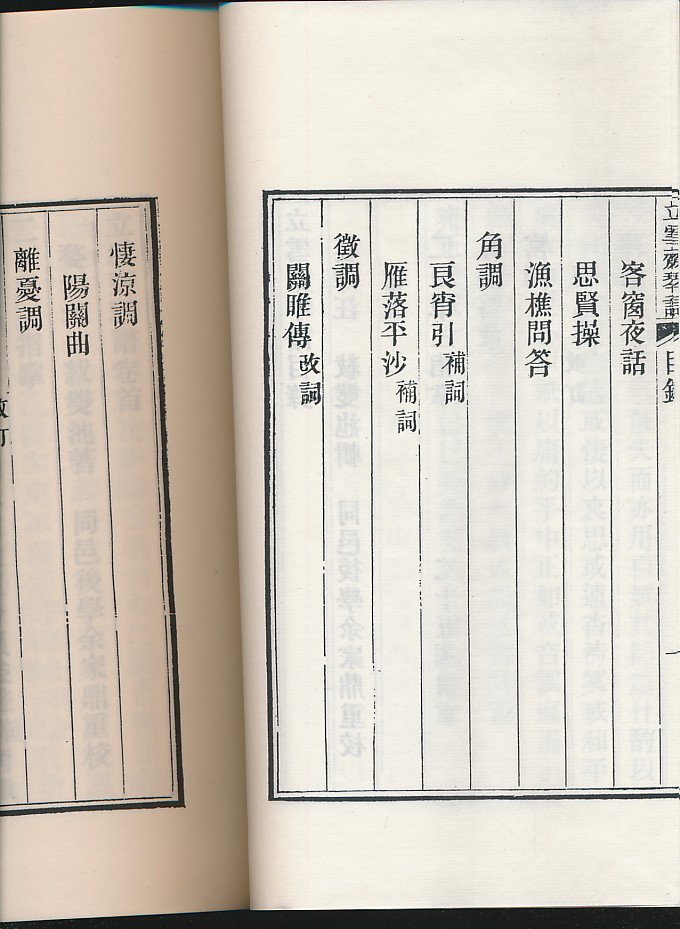 立雪齋琴譜 目錄
客窗夜話
思賢操
漁樵問答
角調
良宵引補詞
雁落平沙補詞
徵調
關雎傳改詞
悽涼調
陽關曲
離憂調